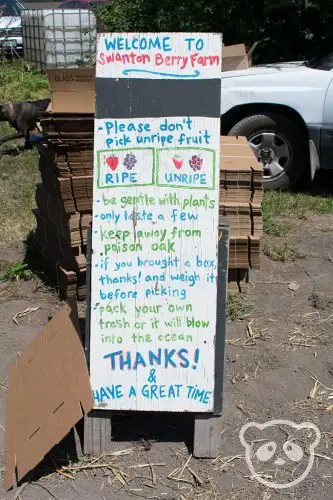 WELCOME TO
Swanton BERRY FARM
- Please don't
pick unripe fruit
RIPE UNRIPE
- be gentle with plants
- only taste a few
- keep away from
poison oak
- if you brought a box,
thanks! and weigh it
before picking
- pack your own
trash or it will blow
into the ocean
THANKS!
&
HAVE A GREAT TIME